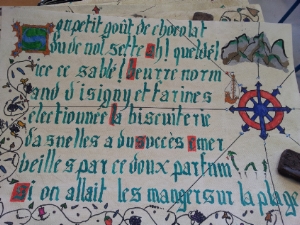 un petit goût de chocolat
ou de noisette ah! quel dél
ice ce sablé! beurre norm
and d'isigny et farines
sélectionnée la biscuiterie
dasnelles a du succès émer
veillés par ce doux parfum
si on allait les manger sur la plage